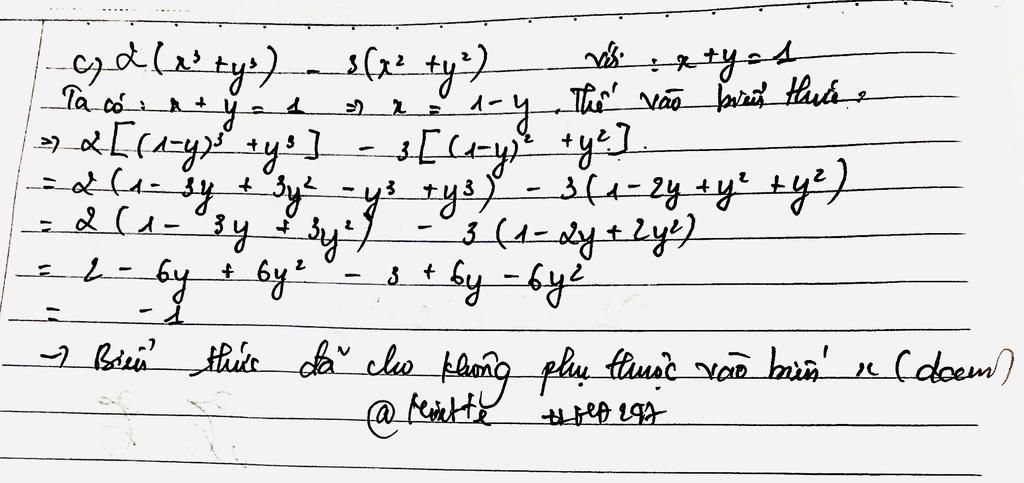 c) 2(x³ + y³) - 3(x² + y²) với : x + y = 1
Ta có : x + y = 1 => x = 1 - y. Thế vào biểu thức,
=> 2[(1-y)³ + y³] - 3[(1-y)² + y²].
= 2(1 - 3y + 3y² - y³ + y³) - 3(1 - 2y + y² + y²)
= 2(1 - 3y + 3y²) - 3(1 - 2y + 2y²)
= 2 - 6y + 6y² - 3 + 6y - 6y²
= - 1
→ Biểu thức đã cho không phụ thuộc vào biến x (đpcm)
@